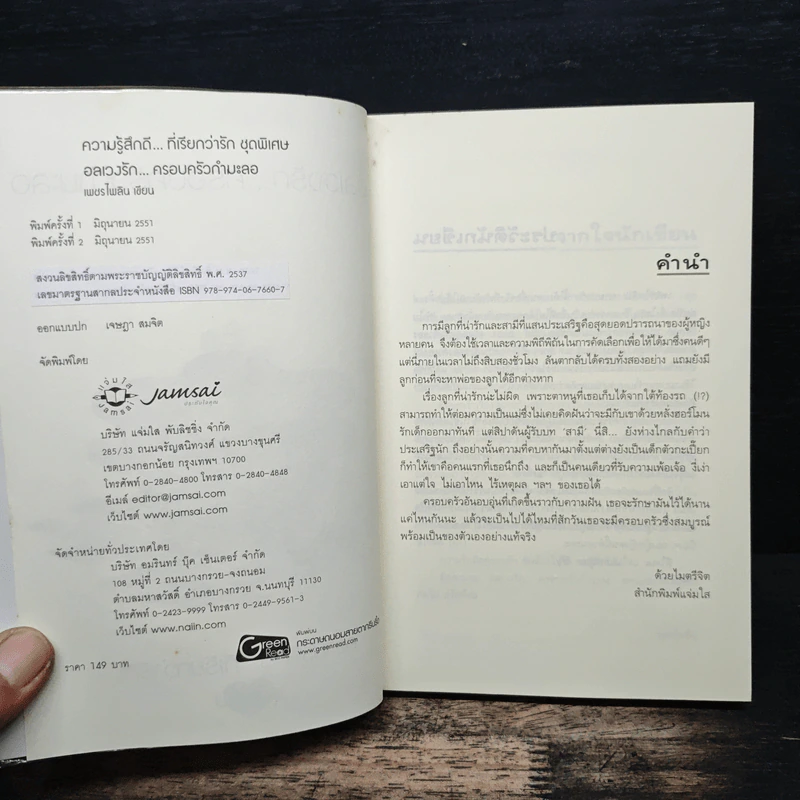 ความรู้สึกดี... ที่เรียกว่ารัก ชุดพิเศษ
อลเวงรัก... ครอบครัวกำมะลอ
เพชรไพลิน เขียน
พิมพ์ครั้งที่ 1 มิถุนายน 2551
พิมพ์ครั้งที่ 2 มิถุนายน 2551
สงวนลิขสิทธิ์ตามพระราชบัญญัติลิขสิทธิ์ พ.ศ. 2537
เลขมาตรฐานสากลประจำหนังสือ ISBN 978-974-06-7660-7
ออกแบบปก เจษฎา สมจิต
จัดพิมพ์โดย
แจ่มใส
Jamsai
Jamsai
บริษัท แจ่มใส พับลิชชิ่ง จำกัด
285/33 ถนนจรัญสนิทวงศ์ แขวงบางขุนศรี
เขตบางกอกน้อย กรุงเทพฯ 10700
โทรศัพท์ 0-2840-4800 โทรสาร 0-2840-4848
อีเมล์ editor@jamsai.com
เว็บไซต์ www.jamsai.com
จัดจำหน่ายทั่วประเทศโดย
บริษัท อมรินทร์ บุ๊ค เซ็นเตอร์ จำกัด
108 หมู่ที่ 2 ถนนบางกรวย-จงถนอม
ตำบลมหาสวัสดิ์ อำเภอบางกรวย จ.นนทบุรี 11130
โทรศัพท์ 0-2423-9999 โทรสาร 0-2449-9561-3
เว็บไซต์ www.naiin.com
Green Read
พิมพ์บน
กระดาษถนอมสายตากรีนรี้ด
www.greenread.com
ราคา 149 บาท
คำนำ
การมีลูกที่น่ารักและสามีที่แสนประเสริฐคือสุดยอดปรารถนาของผู้หญิง
หลายคน จึงต้องใช้เวลาและความพิถีพิถันในการคัดเลือกเพื่อให้ได้มาซึ่งคนดีๆ
แต่นี่ภายในเวลาไม่ถึงสิบสองชั่วโมง ลันตากลับได้ครบทั้งสองอย่าง แถมยังมี
ลูกก่อนที่จะหาพ่อของลูกได้อีกต่างหาก
เรื่องลูกที่น่ารักน่ะไม่ผิด เพราะตาหนูที่เธอเก็บได้จากใต้ท้องรถ (!?)
สามารถทำให้ต่อมความเป็นแม่ซึ่งไม่เคยคิดฝันว่าจะมีกับเขาด้วยหลั่งฮอร์โมน
รักเด็กออกมาทันที แต่สิปาตันผู้รับบท 'สามี' นี่สิ... ยังห่างไกลกับคำว่า
ประเสริฐนัก ถึงอย่างนั้นความที่คบหากันมาตั้งแต่ต่างยังเป็นเด็กตัวกะเปี๊ยก
ก็ทำให้เขาคือคนแรกที่เธอนึกถึง และก็เป็นคนเดียวที่รับความเพ้อเจ้อ งี่เง่า
เอาแต่ใจ ไม่เอาไหน ไร้เหตุผล ฯลฯ ของเธอได้
ครอบครัวอันอบอุ่นที่เกิดขึ้นราวกับความฝัน เธอจะรักษามันไว้ได้นาน
แค่ไหนกันนะ แล้วจะเป็นไปได้ไหมที่สักวันเธอจะมีครอบครัวซึ่งสมบูรณ์
พร้อมเป็นของตัวเองอย่างแท้จริง
ด้วยไมตรีจิต
สำนักพิมพ์แจ่มใส